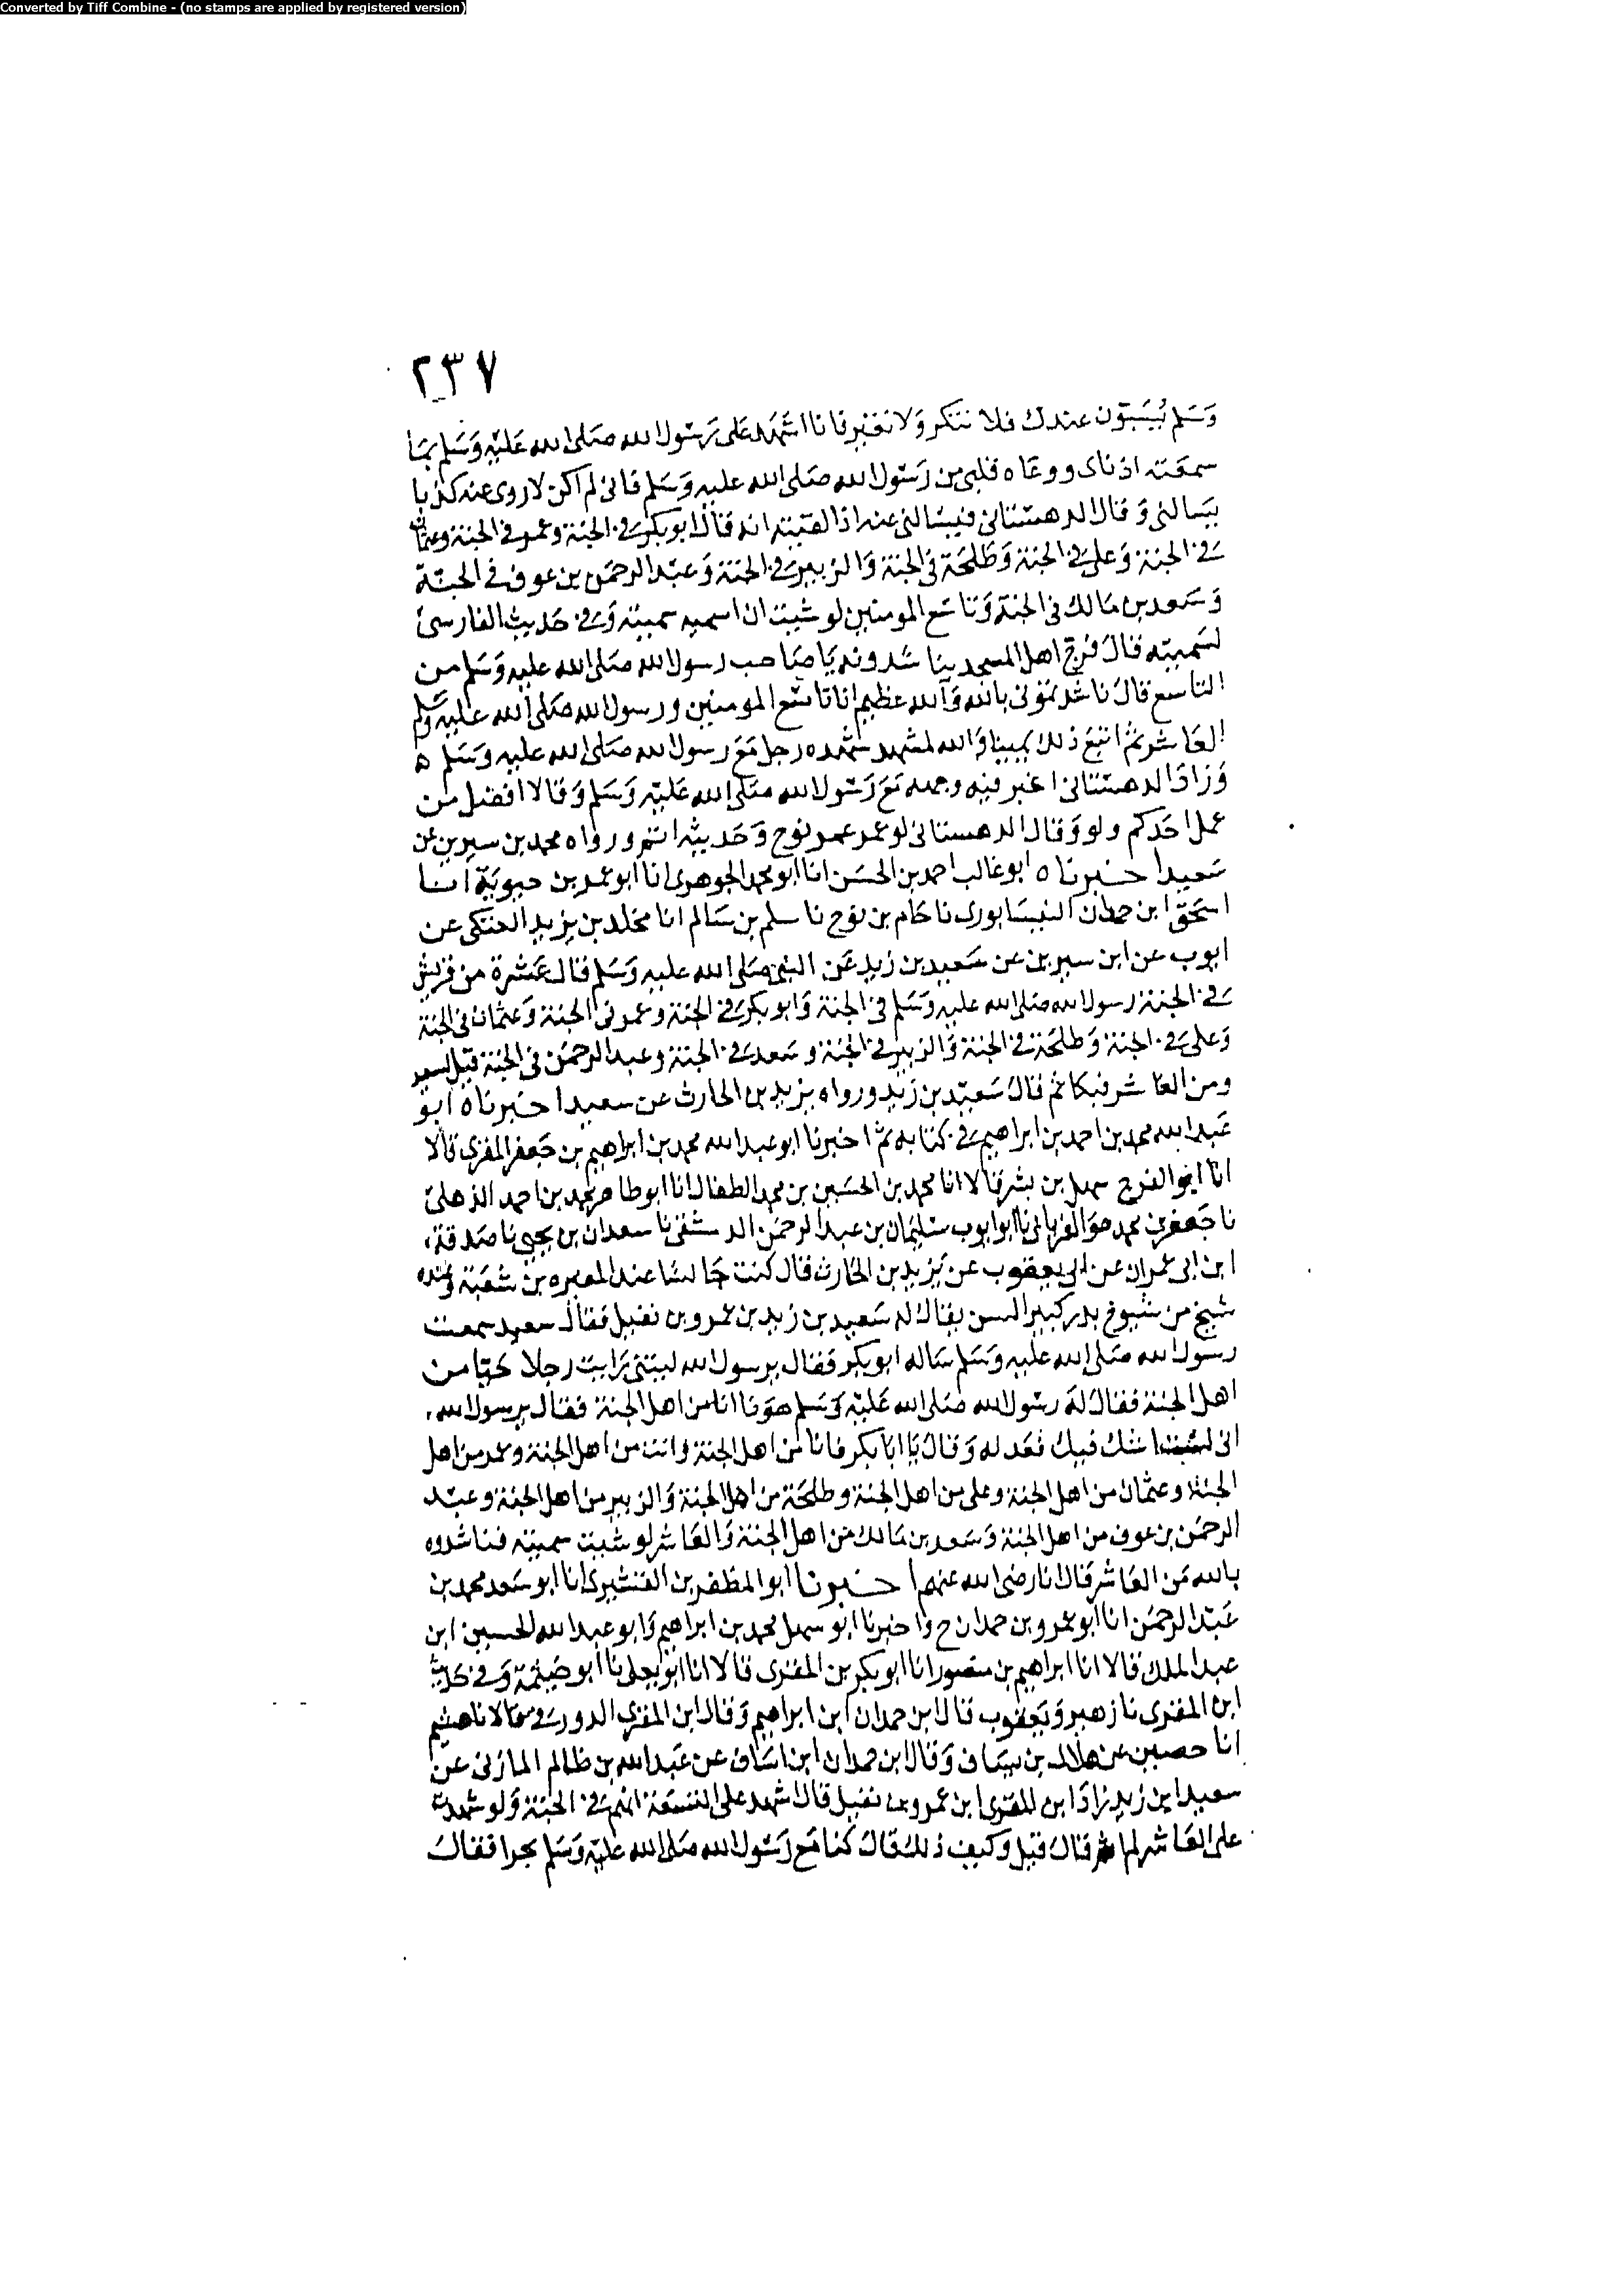 Converted by Tiff Combine - (no stamps are applied by registered version)
٢٣٧
وَسَلم يُسَبّون عندك فلا تنكر وَلا تغير فانا اشهَد على رَسُول الله صَلى الله عَليْه وَسَلم بمَا
سمعَته اذناى ووعَاه قلبى من رَسُول الله صَلى الله عليه وَسَلم فانى لم اكن لاروى عنه كذبا
يسَالنى وَقال الدهستانى فيسَالنى عنه اذا لقيته انه قال ابو بكر فى الجنة وعمر فى الجنة وعثمان
فى الجنة وَعلى فى الجنة وَطلحَة فى الجنة وَالزبير فى الجنة وَعبْد الرحمَن بن عوف فى الجنة
وَسَعد بن مَالك فى الجنة وَتاسَع المومنين لو شيت ان اسميه سميته وَفى حَديث الفارسىّ
لسَميته قال فرج اهل المسجد يناشدونه يَا صَاحب رسول الله صَلى الله عليه وَسَلم من
التاسع قال ناشدتمونى بالله وَالله عظيم انا تاسَع المومنين ورسول الله صَلى الله عليه وسَلم
العَاشر ثم اتبعَ ذلك يمينا وَالله لمشهد شهده رجل مَع رسول الله صَلى الله عليه وَسَلم ه
وَزادَ الدهستانى اغبر فيه وجهه مَع رَسُول الله صَلى الله عَليْه وَسَلم وَقالا افضل من
عمل احَدكم ولو وَقال الدهستانى لو عمر عمر نوح وَحَديثه اتم ورواه محمد بن سيرين عن
سَعيد اخبرناه ابو غالب احمد بن الحسَن انا ابو محمد الجوهرى انا ابو عمر بن حيويَة انا
اسحَق ابن حمدان النيسَابورى نا حَام بن نوح نا سلم بن سَالم انا مخلد بن يزيد العتكى عن
ايوب عن ابن سيرين عن سَعيد بن زيد عَن النبى صَلى الله عليه وَسَلم قال عَشرة من قريش
فى الجنة رسول الله صَلى الله عليه وَسَلم فى الجنة وَابو بكر فى الجنة وعمر فى الجنة وَعثمان فى الجنة
وَعلى فى الجنة وَطلحَة فى الجنة وَالزبير فى الجنة وسَعد فى الجنة وعبد الرحمَن فى الجنة قيل لسعيد
ومن العَاشر فبكا ثم قال سَعيْد بن زيد ورواه يزيد بن الحارث عن سعيد اخبرناه ابو
عَبد الله محمد بن احمد بن ابراهيم فى كتابه ثم اخبرنا ابو عبد الله محمد بن ابراهيم بن جَعفر المقرى قالا
انا ابو الفرج سهل بن بشر قالا انا محمد بن الحسَين بن محمد الطفال انا ابو طاهر محمد بن احمد الذهلىّ
نا جَعفر بن محمد هو الفريابى نا ابو ايوب سليمَان بن عبد الرحمَن الدمشقى نا سعدان بن يحيى نا صَدقة
ابن ابى عمران عن ابى يعقوب عن يَزيد بن الحَارث قال كنت جَالسًا عند المغيره بن شعبَة وعنده
شيخ من شيوخ بدر كبير السن يقال له سَعيد بن زيد بن عمرو بن نفيل فقال سعيد سمعت
رسول الله صَلى الله عليه وَسَلم سَاله ابو بكر فقال يرسول الله ليتنى رَايت رجلا حَيّا من
اهل الجنة فقال لهَ رسُول الله صَلى الله عَليْه وَسَلم هوَ فا انا من اهل الجنة فقال يرسول الله
انى لست اشك فيك فعَد له وَقال يَا ابَا بكر فانا من اهل الجنة وانت من اهل الجنة وعمر من اهل
الجنة وعثمان من اهل الجنة وعلى من اهل الجنة وطلحَة من اهل الجنة وَالزبير من اهل الجنة وعبْد
الرحمَن بن عوف من اهل الجنة وَسَعد بن مَالك من اهل الجنة وَالعَاشر لو شيت سميته فناشدوه
بالله مَن العَاشر قال انا رضى الله عنهم اخبرنا ابو المظفر بن القشيرى انا ابو سَعد محمد بن
عَبْد الرحمَن انا ابو عمرو بن حمدان ح واخبرنا ابو سهل محمد بن ابراهيم وَابو عبد الله الحسين ابن
عبد الملك قالا انا ابراهيم بن منصور انا ابو بكر بن المقرى قالا انا ابو يعلى نا ابو خيثمة وَفى حَديث
ابن المقرى نا زهير وَيَعقوب قال ابن حمدان ابن ابراهيم وَقال ابن المقرى الدورقى قالا نا هشيم
انا حصين عن هلال بن يسَاف وَقال ابن حمدان ابن اسَاف عن عَبد الله بن ظالم المازنى عن
سعيد ابن زيد زادَ ابن المقرى ابن عمرو بن نفيل قال اشهد على التسعَة انهم فى الجنة وَلو شهدت
على العَاشر لم اثم قال قيل وكيف ذلك قال كنا مَع رَسُول الله صَلى الله عليْه وَسَلم بحرا فقال